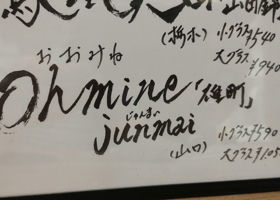 山田錦
(栃木) 小グラス¥540
大グラス¥940
おおみね
Ohmine「雄町」
じゅんまい
junmai
(山口) 小グラス¥590
大グラス¥1.05